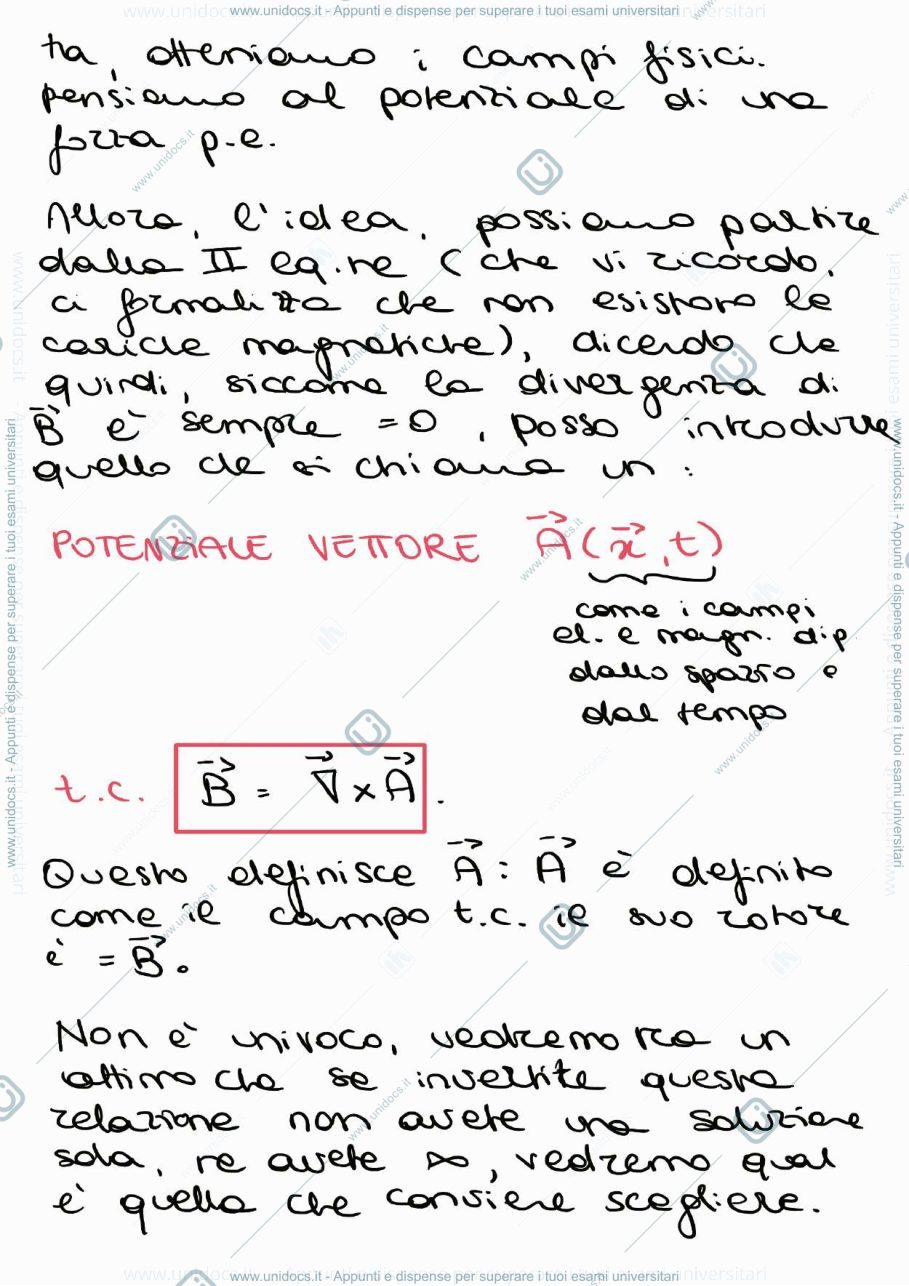 www.unidocs.it - Appunti e dispense per superare i tuoi esami universitari
ta, otteniamo i campi fisici.
pensiamo al potenziale di una
forza p.e.
Allora, l'idea, possiamo partire
dalla II eq.ne (che vi ricordo,
ci formalizza che non esistono le
cariche magnetiche), dicendo che
quindi, siccome la divergenza di
B⃗ è sempre =0, posso introdurre
quello che si chiama un :
POTENZIALE VETTORE A⃗(x⃗,t)
come i campi
el. e magn. dip
dallo spazio e
dal tempo
t.c. B⃗ = ∇⃗×A⃗ .
Questo definisce A⃗ : A⃗ è definito
come il campo t.c. il suo rotore
è = B⃗.
Non è univoco, vedremo tra un
attimo che se invertite questa
relazione non avete una soluzione
sola, ne avete ∞, vedremo qual
è quella che conviene scegliere.
www.unidocs.it - Appunti e dispense per superare i tuoi esami universitari